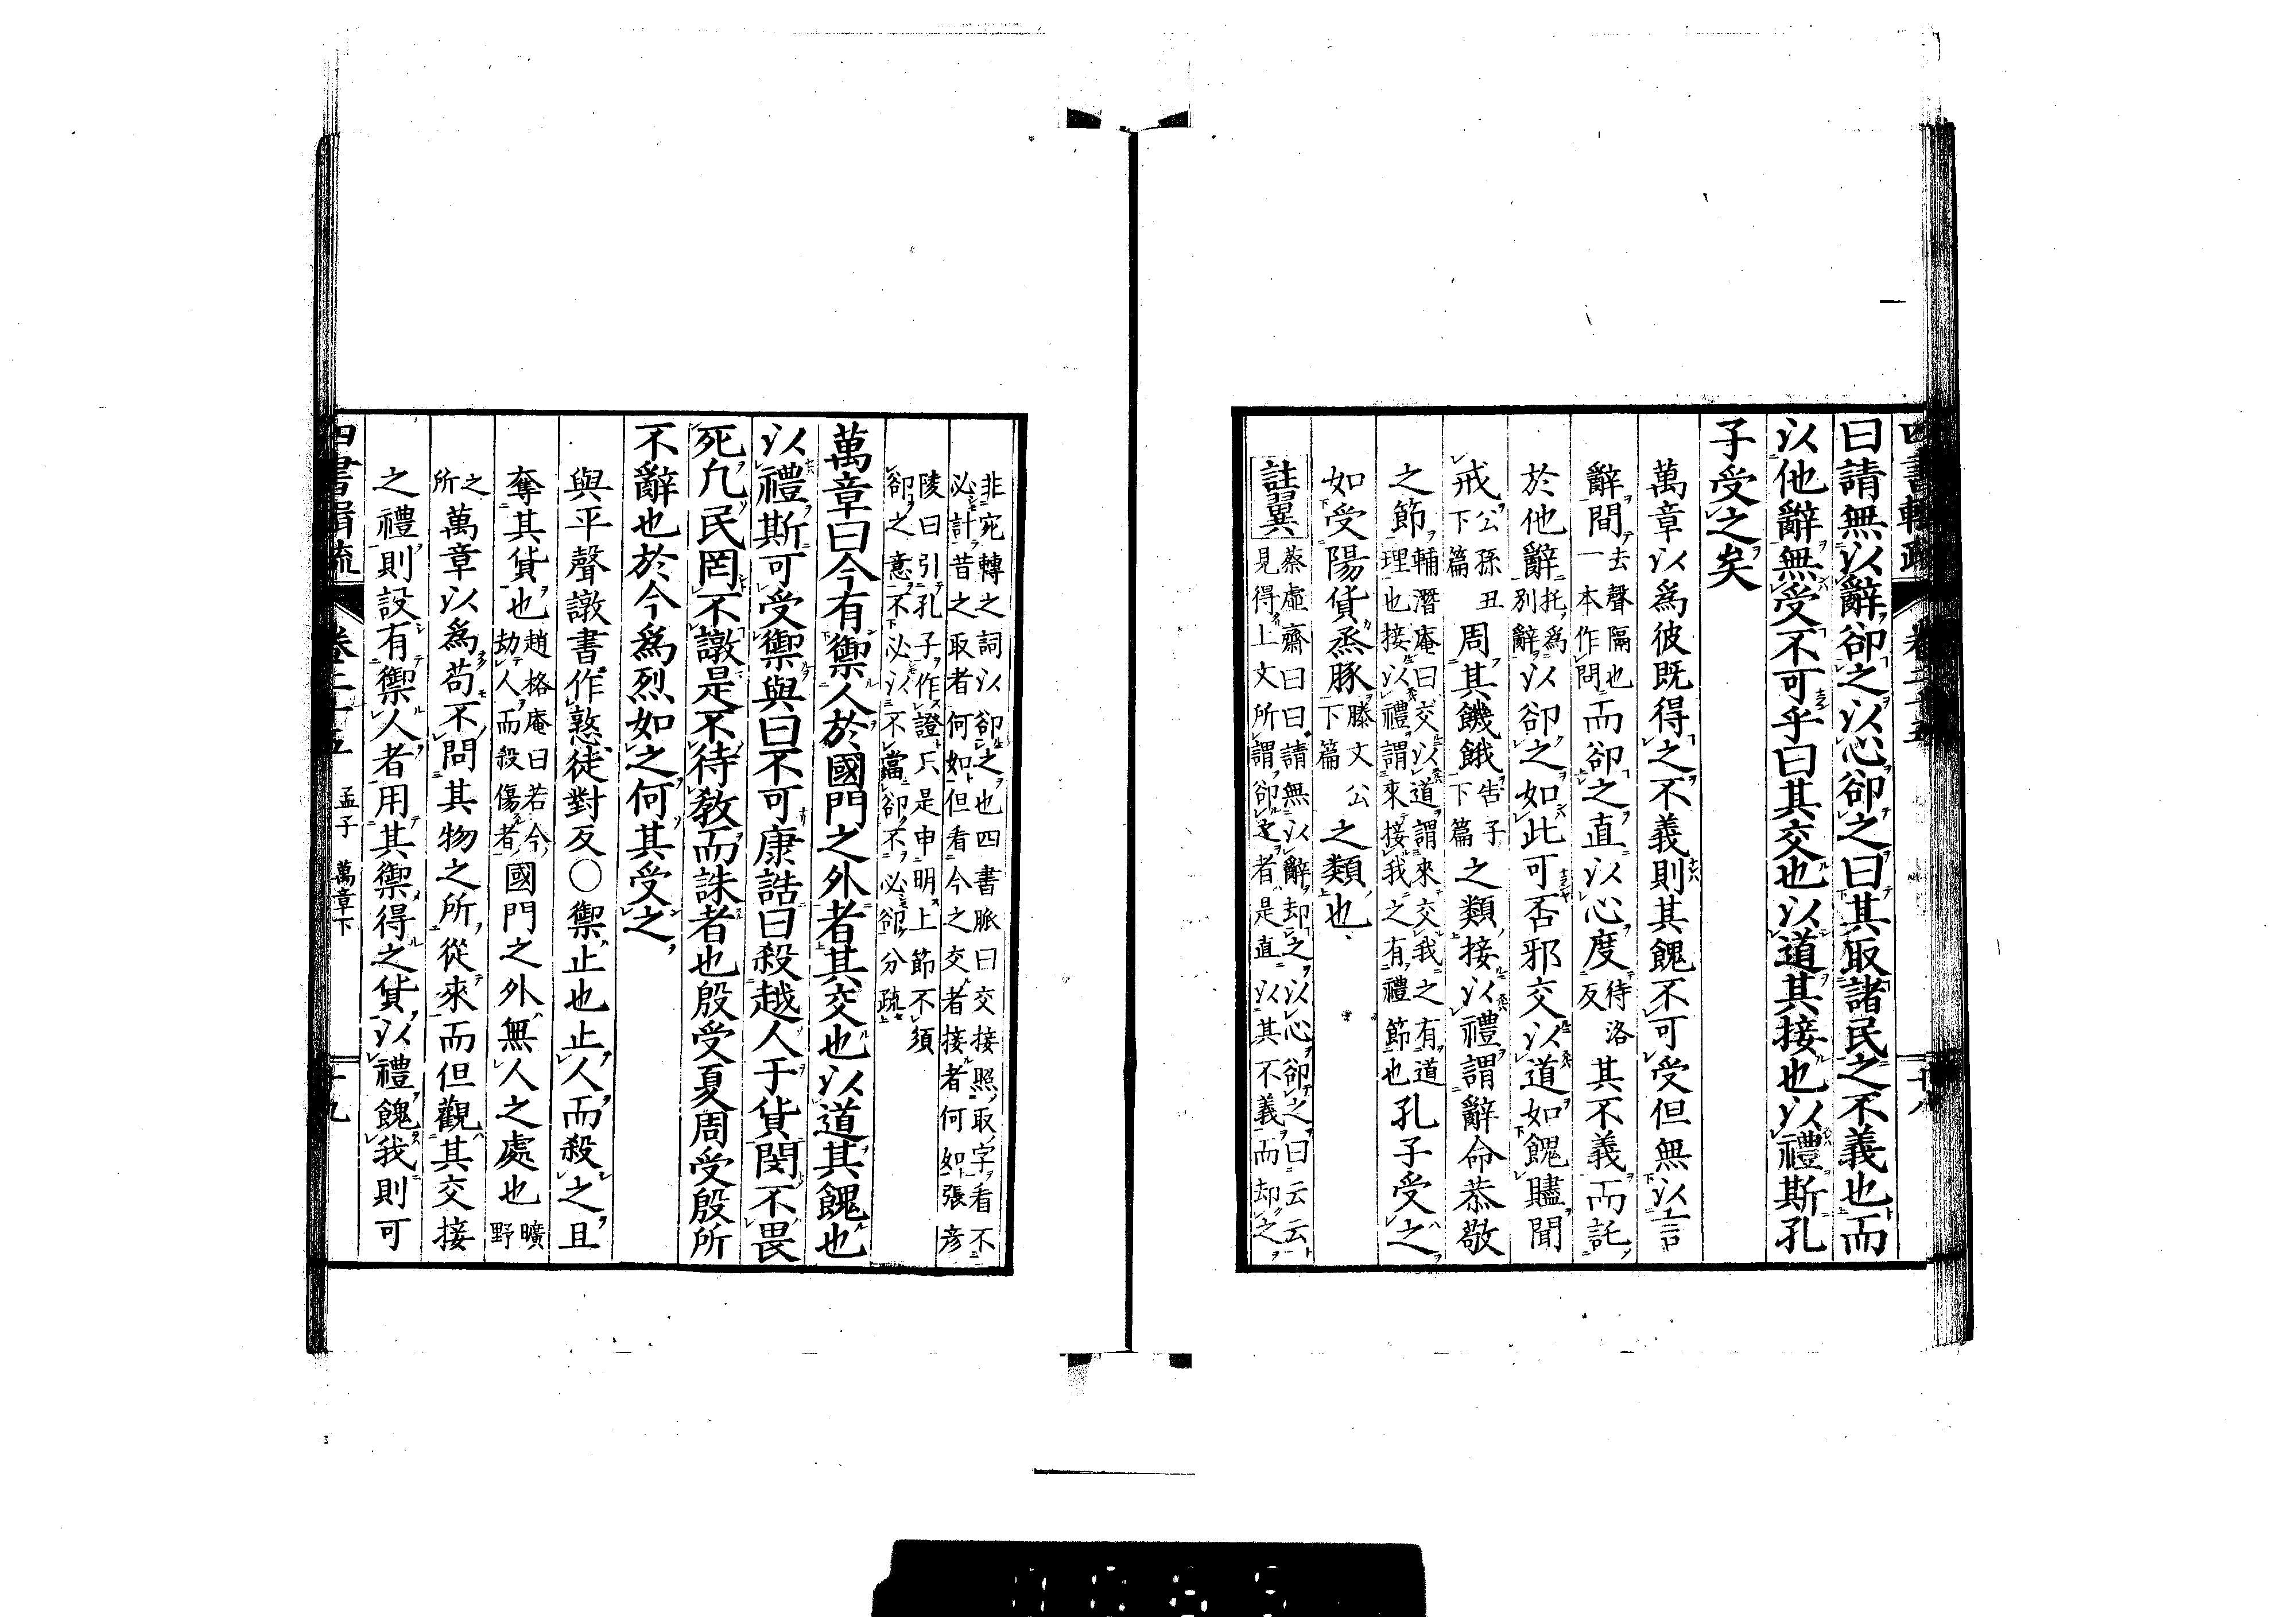 曰請無以辭卻之以心卻之曰其取諸民之不義也而
以他辭無受不可乎曰其交也以道其接也以禮斯孔
子受之矣
萬章以爲彼既得之不義則其餽不可受但無以言
辭間去聲隔也一本作問而卻之直以心度待洛反其不義而託
於他辭托爲別辭以卻之如此可否邪交以道如餽贐聞
戒公孫丑下篇周其饑餓告子下篇之類接以禮謂辭命恭敬
之節輔潛庵曰交以道謂來交我之有道理也接以禮謂來接我之有禮節也孔子受之
如受陽貨烝豚滕文公下篇之類也
註翼蔡虛齋曰曰請無以辭却之以心卻之曰云云見得上文所謂卻之者是直以其不義而却之
非宛轉之詞以卻之也四書脈曰交接照取字看不必計昔之取者何如但看今之交者接者何如張彥
陵曰引孔子作證只是申明上節不須卻之意不必以不當卻不必卻分疏
萬章曰今有禦人於國門之外者其交也以道其餽也
以禮斯可受禦與曰不可康誥曰殺越人于貨閔不畏
死凡民罔不譈是不待敎而誅者也殷受夏周受殷所
不辭也於今爲烈如之何其受之
與平聲譈書作憝徒對反○禦止也止人而殺之且
奪其貨也趙格庵曰若今劫人而殺傷者國門之外無人之處也曠野
之所萬章以爲苟不問其物之所從來而但觀其交接
之禮則設有禦人者用其禦得之貨以禮餽我則可
孟子 萬章下